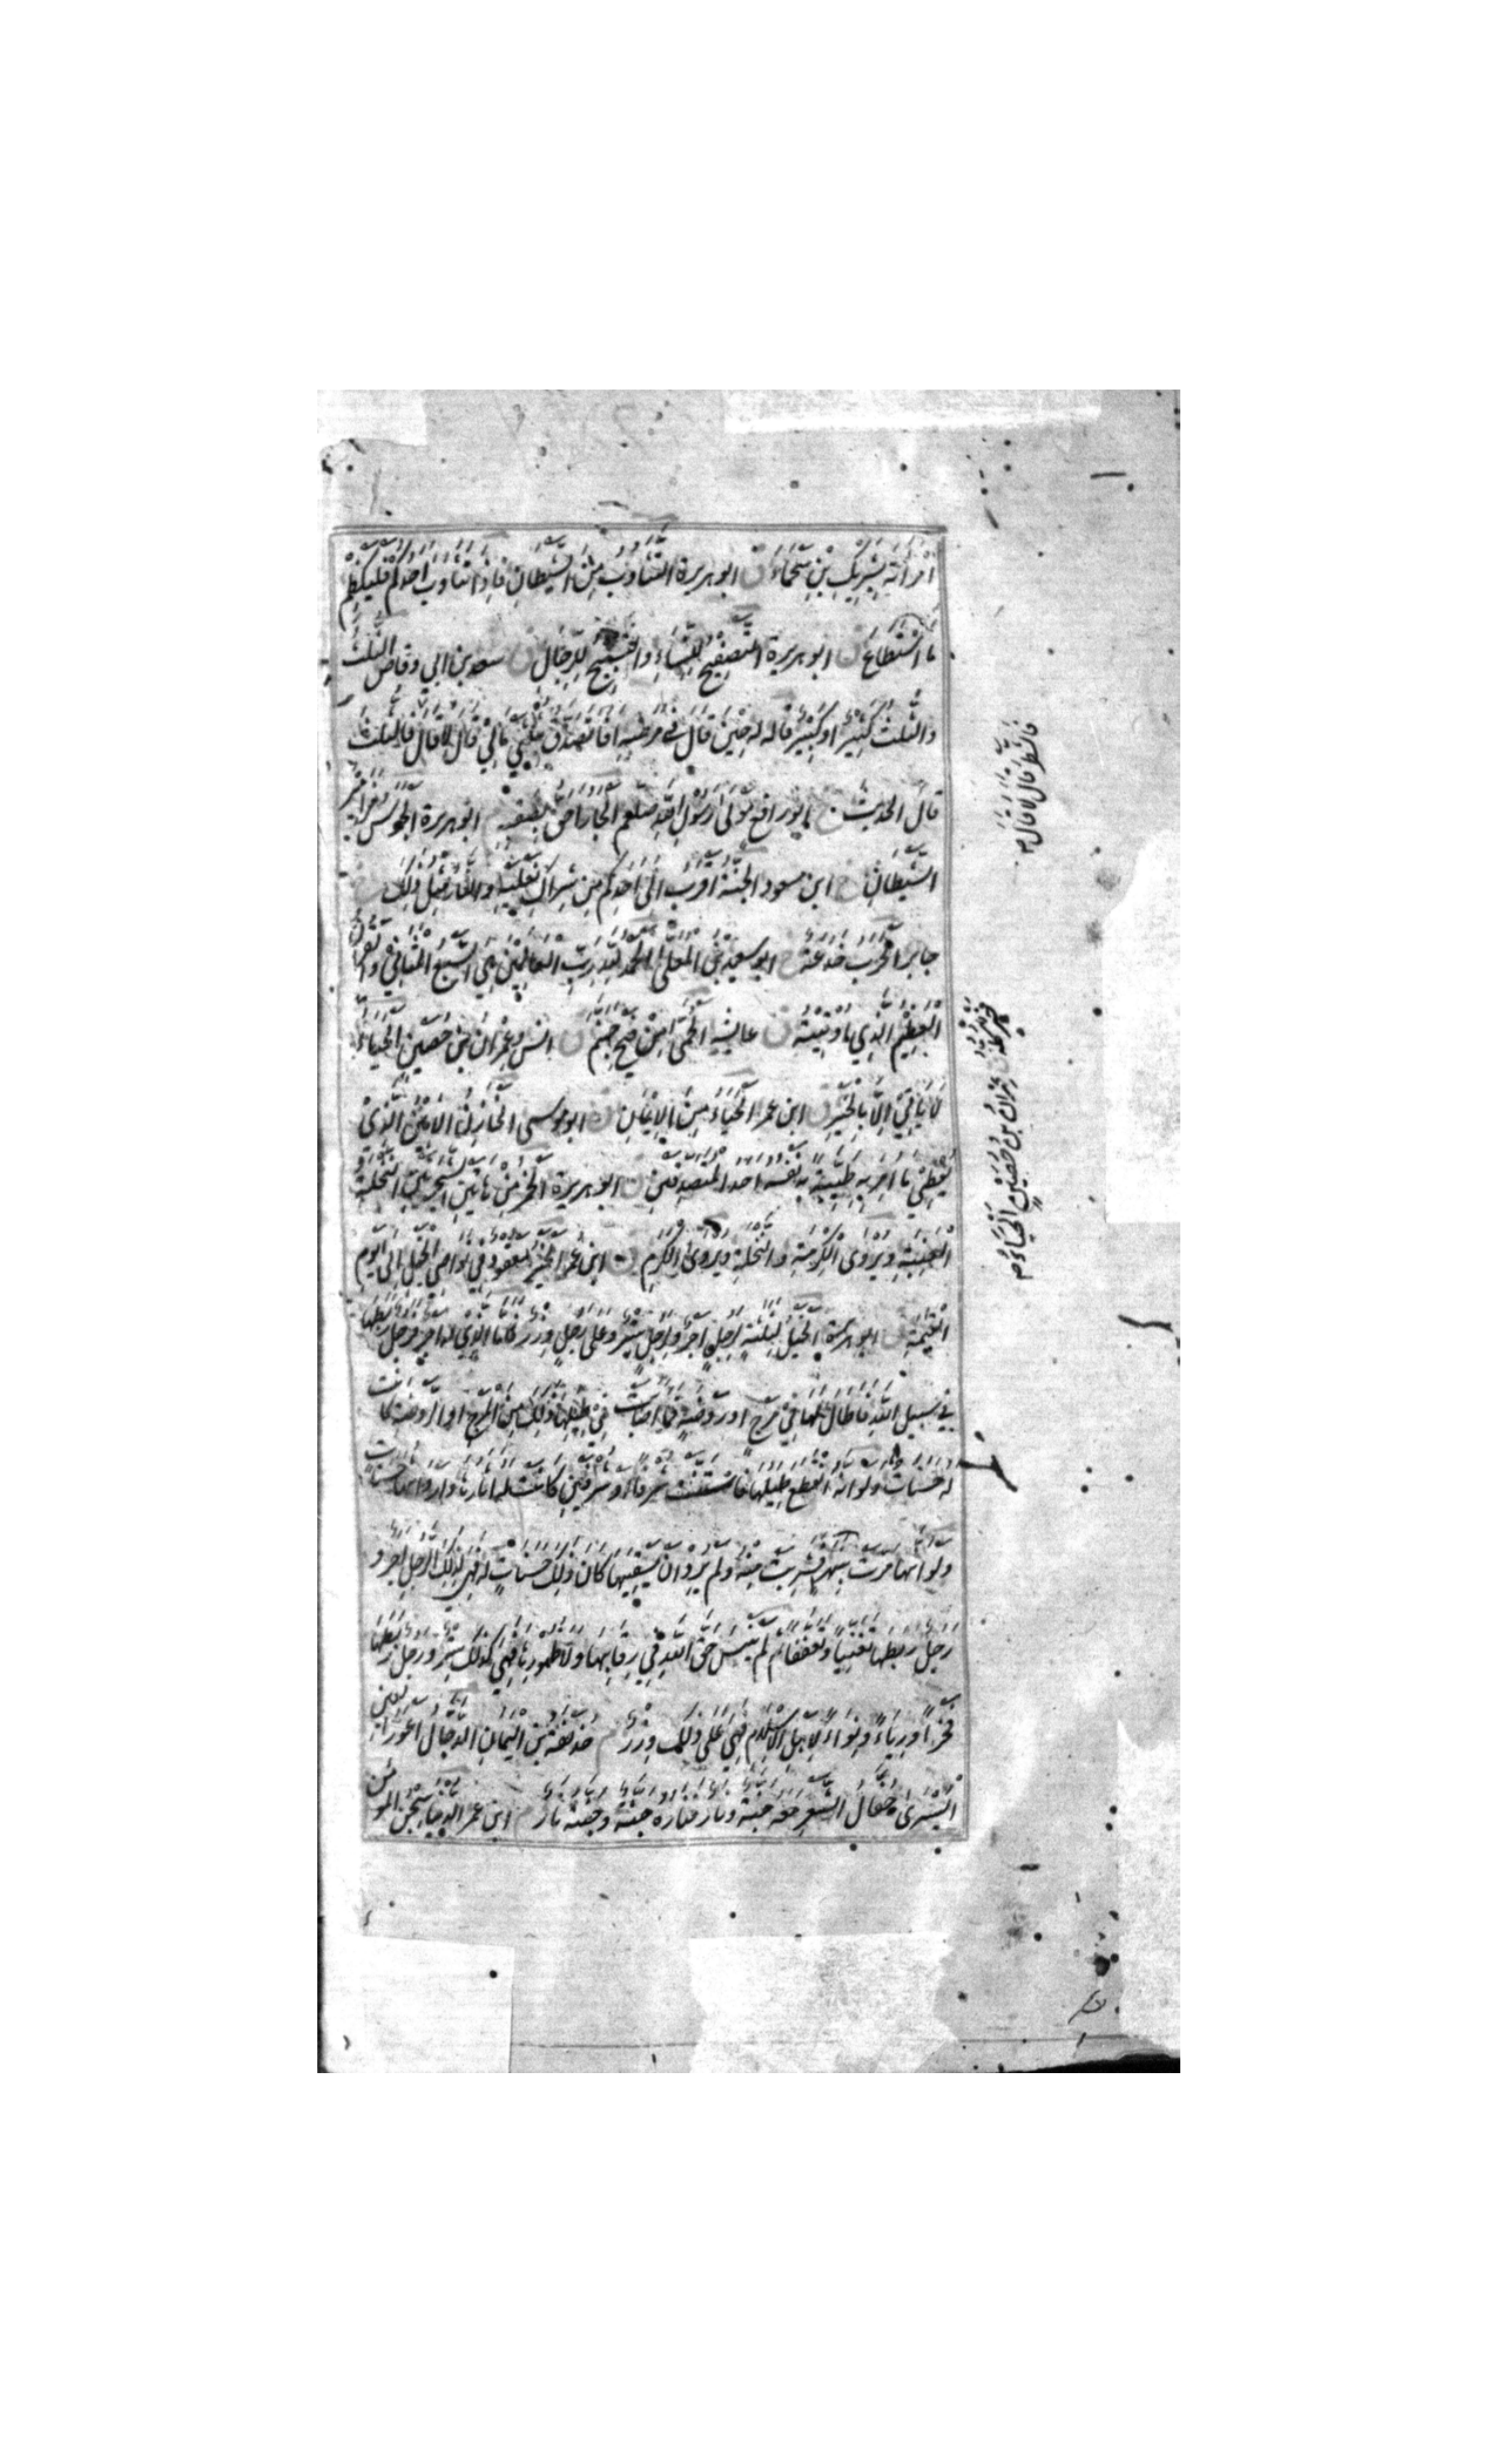 امْرَأَتَهُ بِشَرِيكِ بْنِ سَحْمَاءَ ق ابو هريرة التَّثَاؤُبُ مِنَ الشَّيْطَانِ فَاِذَا تَثَاوَبَ اَحَدُكُمْ فَلْيَكْظِمْ
مَا اسْتَطَاعَ ق ابو هريرة التَّصْفِيحُ لِلنِّسَاءِ وَالتَّسْبِيحُ لِلرِّجَالِ ق سعد بن ابي وقاص الثلث
والثُّلُثُ كَثِيرٌ اَوْ كَبِيْرٌ قاله له حِيْنَ قَالَ في مرضِهِ اَفَاَتَصَدَّقُ بِثُلُثَيْ مَالِيْ قَالَ لَا قَالَ فَالثلث
قالَ الحديث خ ابو رافع مَوْلَى رَسُوْلِ اللّٰهِ صلعم الْجَارُ اَحَقُّ بِصَقَبِهِ م ابو هريرة الجَرَسُ مزامير
الشَّيْطَانِ خ ابن مسعود الجَنَّةُ اَقْرَبُ اِلَى اَحَدِكُمْ مِنْ شِرَاكِ نَعْلَيْهِ وَالنَّارُ مِثْلُ ذٰلِكَ
جابر الْحَرْبُ خَدْعَةٌ خ ابو سعيد بن المعلى الْحَمْدُ لِلّٰهِ رَبِّ الْعَالَمِيْنَ هِيَ السَّبْعُ الْمَثَانِيْ وَالقران
الْعَظِيْمُ الَّذِي اُوْتِيْتُهُ ق عايشه الْحُمَّى مِنْ فَيْحِ جَهَنَّمَ ق انس وعِمْرَان بن حصين الْحَيَاءُ
لَا يَأتِيْ اِلَّا بِالْخَيْرِ ق ابن عمر الْحَيَاءُ مِنَ الْاِيْمَانِ ق ابو موسى الْخَازِنُ الْاَمِيْنُ الَّذِيْ
يُعْطِيْ مَا اُمِرَ بِهِ طَيِّبَةً بِهِ نَفْسُه احد الْمُتَصَدِّقَيْنِ م ابو هريرة الخمرُ مِنْ هَاتَيْنِ الشَّجَرَتَيْنِ النَّخْلَةِ
الْعِنَبَةِ وَيُرْوٰى الْكَرْمَةِ وَالنَّخْلَةِ وَيُرْوٰى الْكَرْمِ ق ابن عمر الْخَيْرُ مَعْقُوْدٌ فِيْ نَوَاصِي الْخَيْلِ اِلٰى يَوْمِ
الْقِيٰمَةِ ق ابو هريرة الْخَيْلُ لِثَلٰثَةٍ لِرَجُلٍ اَجْرٌ وَلِرَجُلٍ سِتْرٌ وَعَلٰى رَجُلٍ وِزْرٌ فَاَمَّا الَّذِيْ لَهُ اَجْرٌ فَرَجُلٌ رَبَطَهَا
فِيْ سَبِيْلِ اللّٰهِ فَاَطَالَ لَهَا فِيْ مَرْجٍ اَوْ رَوْضَةٍ فَمَا اَصَابَتْ فِيْ طِيَلِهَا ذٰلِكَ مِنَ الْمَرْجِ اَوِ الرَّوْضَةِ كانت
لَهُ حَسَنَاتٍ وَلَوْ اَنَّهُ انْقَطَعَ طِيَلُهَا فَاسْتَنَّتْ شَرَفًا اَوْ شَرَفَيْنِ كَانَتْ لَهُ اٰثَارُهَا وَاَرْوَاثُهَا حسنات
وَلَوْ اَنَّهَا مَرَّتْ بِنَهْرٍ فَشَرِبَتْ مِنْهُ وَلَمْ يُرِدْ اَنْ يَسْقِيَهَا كَانَ ذٰلِكَ حَسَنَاتٍ لَهُ فَهِيَ لِذٰلِكَ الرَّجُلِ اَجْرٌ وَ
رَجُلٌ رَبَطَهَا تَغَنِّيًا وَتَعَفُّفًا ثُمَّ لَمْ يَنْسَ حَقَّ اللّٰهِ فِيْ رِقَابِهَا وَلَا ظُهُوْرِهَا فَهِيَ لِذٰلِكَ سِتْرٌ وَرَجُلٌ رَبَطَهَا
فَخْرًا وَرِيَاءً وَنِوَاءً لِاَهْلِ الْاِسْلَامِ فَهِيَ عَلٰى ذٰلِكَ وِزْرٌ م حذيفة بن اليمان الدَّجَّالُ اَعْوَرُ العين
الْيُسْرٰى جُفَالُ الشَّعَرِ مَعَهُ جَنَّةٌ وَنَارٌ فَنَارُهُ جَنَّةٌ وَجَنَّتُهُ نَارٌ م ابن عمر الدُّنْيَا سِجْنُ المؤمن
فالشطر قال لا قال م
عِمْرَانُ بْنُ حُصَيْنٍ اَلْحَيَاءُ م